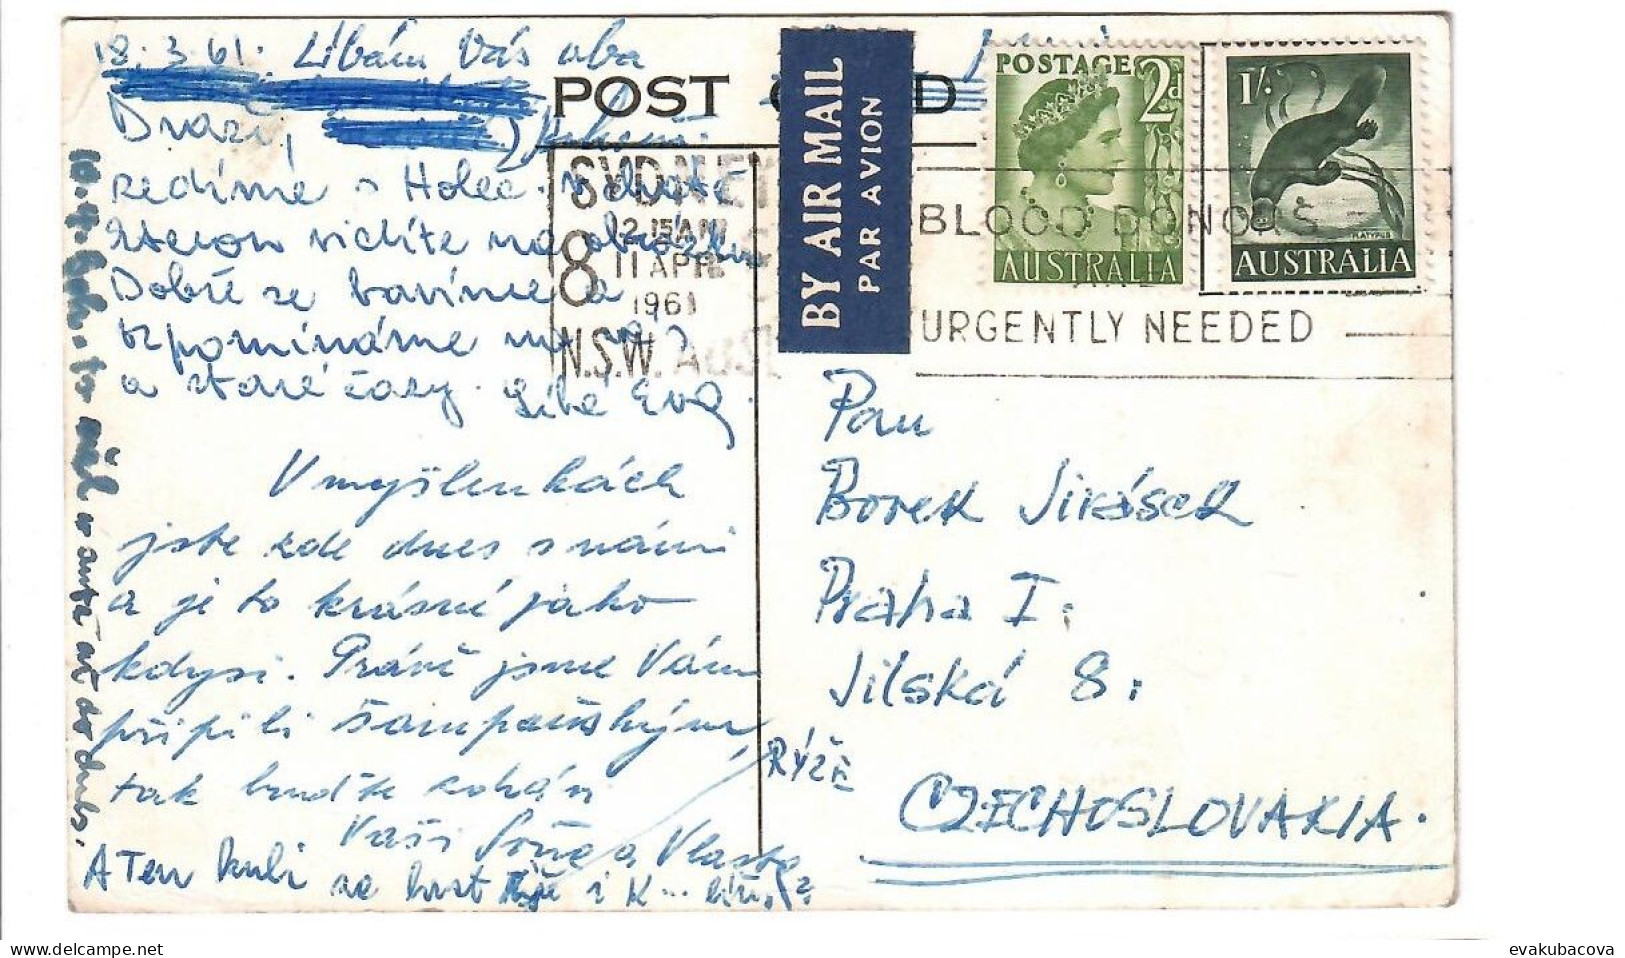 18.3.61. Líbám Vás oba
Drazí,
POST CARD
BY AIR MAIL
PAR AVION
POSTAGE 2d
AUSTRALIA
1/-
PLATYPUS
AUSTRALIA
SYDNEY
8
2.15AM
11 APR
1961
N.S.W. AUST
BLOOD DONORS
ARE
URGENTLY NEEDED
sedíme s Holec.
vidíte na obrázku
Dobře se bavíme a
vzpomínáme na vás
a staré časy. Libé Eva.
V myšlenkách
jste zde dnes s námi
a je to krásné jako
kdysi. Právě jsme Vám
připili šampaňským
tak buďte
Vaši a Vlasta
A Ten kuli se i K...
to měl v autě až do
Pan
Borek Jirásek
Praha I.
Jilská 8.
RÝŽE
CZECHOSLOVAKIA.
evakubacova